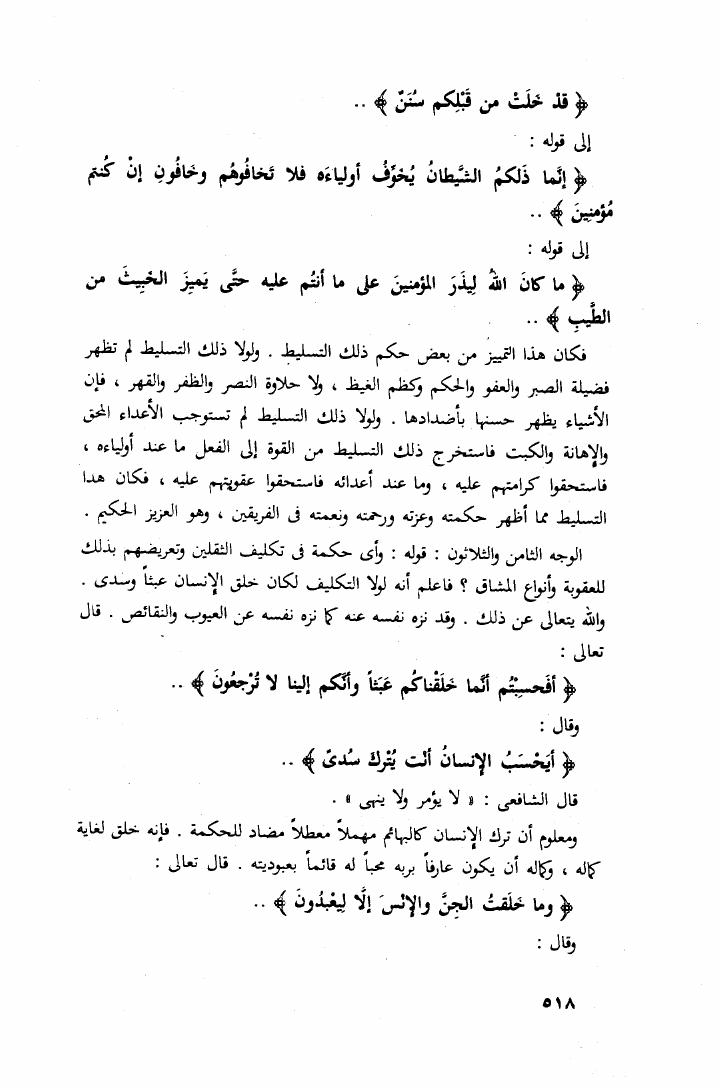 ﴿ قدْ خَلَتْ من قَبْلِكم سُنَنٌ ﴾ ..
إلى قوله :
﴿ إنَّما ذَلكمُ الشَّيطانُ يُخوِّفُ أولياءَه فلا تَخافُوهُم وخَافُونِ إنْ كُنتم
مُؤمنِينَ ﴾ ..
إلى قوله :
﴿ ما كانَ اللهُ لِيذَرَ المؤمنينَ على ما أنتُم عليه حتَّى يَميِزَ الخَبيثَ من
الطَّيبِ ﴾ ..
فكان هذا التمييز من بعض حكم ذلك التسليط . ولولا ذلك التسليط لم تظهر
فضيلة الصبر والعفو والحكم وكظم الغيظ ، ولا حلاوة النصر والظفر والقهر ، فإن
الأشياء يظهر حسنها بأضدادها . ولولا ذلك التسليط لم تستوجب الأعداء المحق
والإهانة والكبت فاستخرج ذلك التسليط من القوة إلى الفعل ما عند أولياءه ،
فاستحقوا كرامتهم عليه ، وما عند أعدائه فاستحقوا عقوبتهم عليه ، فكان هدا
التسليط مما أظهر حكمته وعزته ورحمته ونعمته فى الفريقين ، وهو العزيز الحكيم .
الوجه الثامن والثلاثون : قوله : وأى حكمة فى تكليف الثقلين وتعريضهم بذلك
للعقوبة وأنواع المشاق ؟ فاعلم أنه لولا التكليف لكان خلق الإنسان عبثاً وسدى .
والله يتعالى عن ذلك . وقد نزه نفسه عنه كما نزه نفسه عن العيوب والنقائص . قال
تعالى :
﴿ أفَحسِبْتُم أنَّما خَلَقْناكُم عَبَثاً وأنَّكم إلينا لا تُرْجعُونَ ﴾ ..
وقال :
﴿ أيَحْسَبُ الإنسانُ أنْت يُتْركَ سُدىً ﴾ ..
قال الشافعى : « لا يؤمر ولا ينهى » .
ومعلوم أن ترك الإنسان كالبهائم مهملاً معطلاً مضاد للحكمة . فإنه خلق لغاية
كماله ، وكماله أن يكون عارفاً بربه محباً له قائماً بعبوديته . قال تعالى :
﴿ وما خَلَقتُ الجنَّ والإنْسَ إلَّا ليَعْبدُونَ ﴾ ..
وقال :
٥١٨